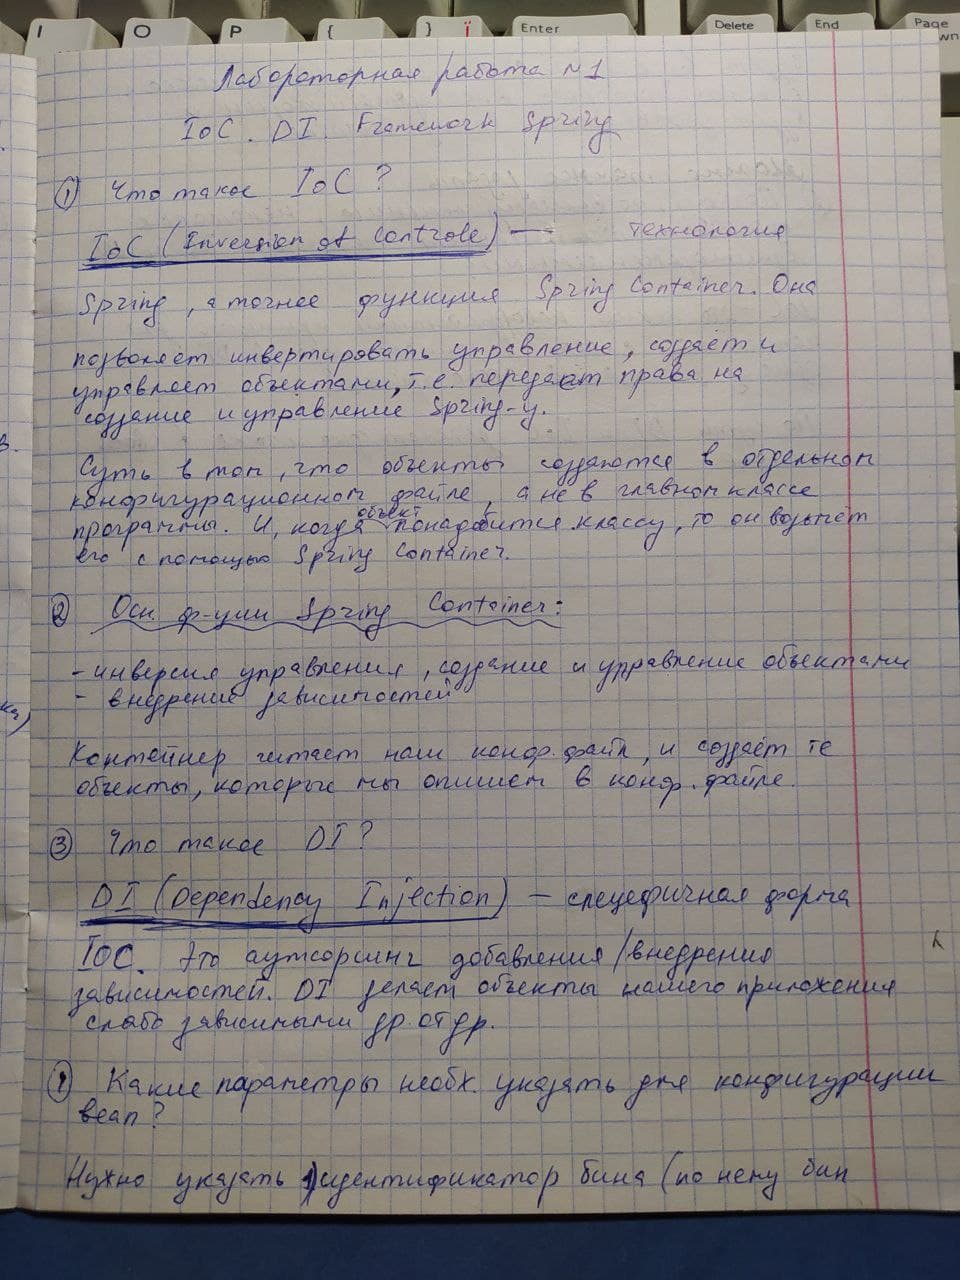 I
O
P
{
}
ї
Enter
Delete
End
Page
wn
Лабораторная работа №1
IoC. DI. Framework Spring
① Что такое IoC?
IoC (Inversion of Controle) — технология
Spring, а точнее функция Spring Container. Она
позволяет инвертировать управление, создаёт и
управляет объектами, т.е. передаёт права на
создание и управление Spring-у.
Суть в том, что объекты создаются в отдельном
конфигурационном файле, а не в главном классе
объект
программы. И, когда понадобится классу, то он возьмёт
его с помощью Spring Container.
② Осн. ф-ции Spring Container:
- инверсия управления, создание и управление объектами
- внедрение зависимостей
Контейнер читает наш конф. файл, и создаёт те
объекты, которые мы опишем в конф. файле.
③ Что такое DI?
DI (Dependency Injection) — специфичная форма
IoC. Это аутсорсинг добавления/внедрения
зависимостей. DI делает объекты нашего приложения
слабо зависимыми др. от др.
Какие параметры необх. указать для конфигурации
bean?
Нужно указать 1) идентификатор бина (по нему бин